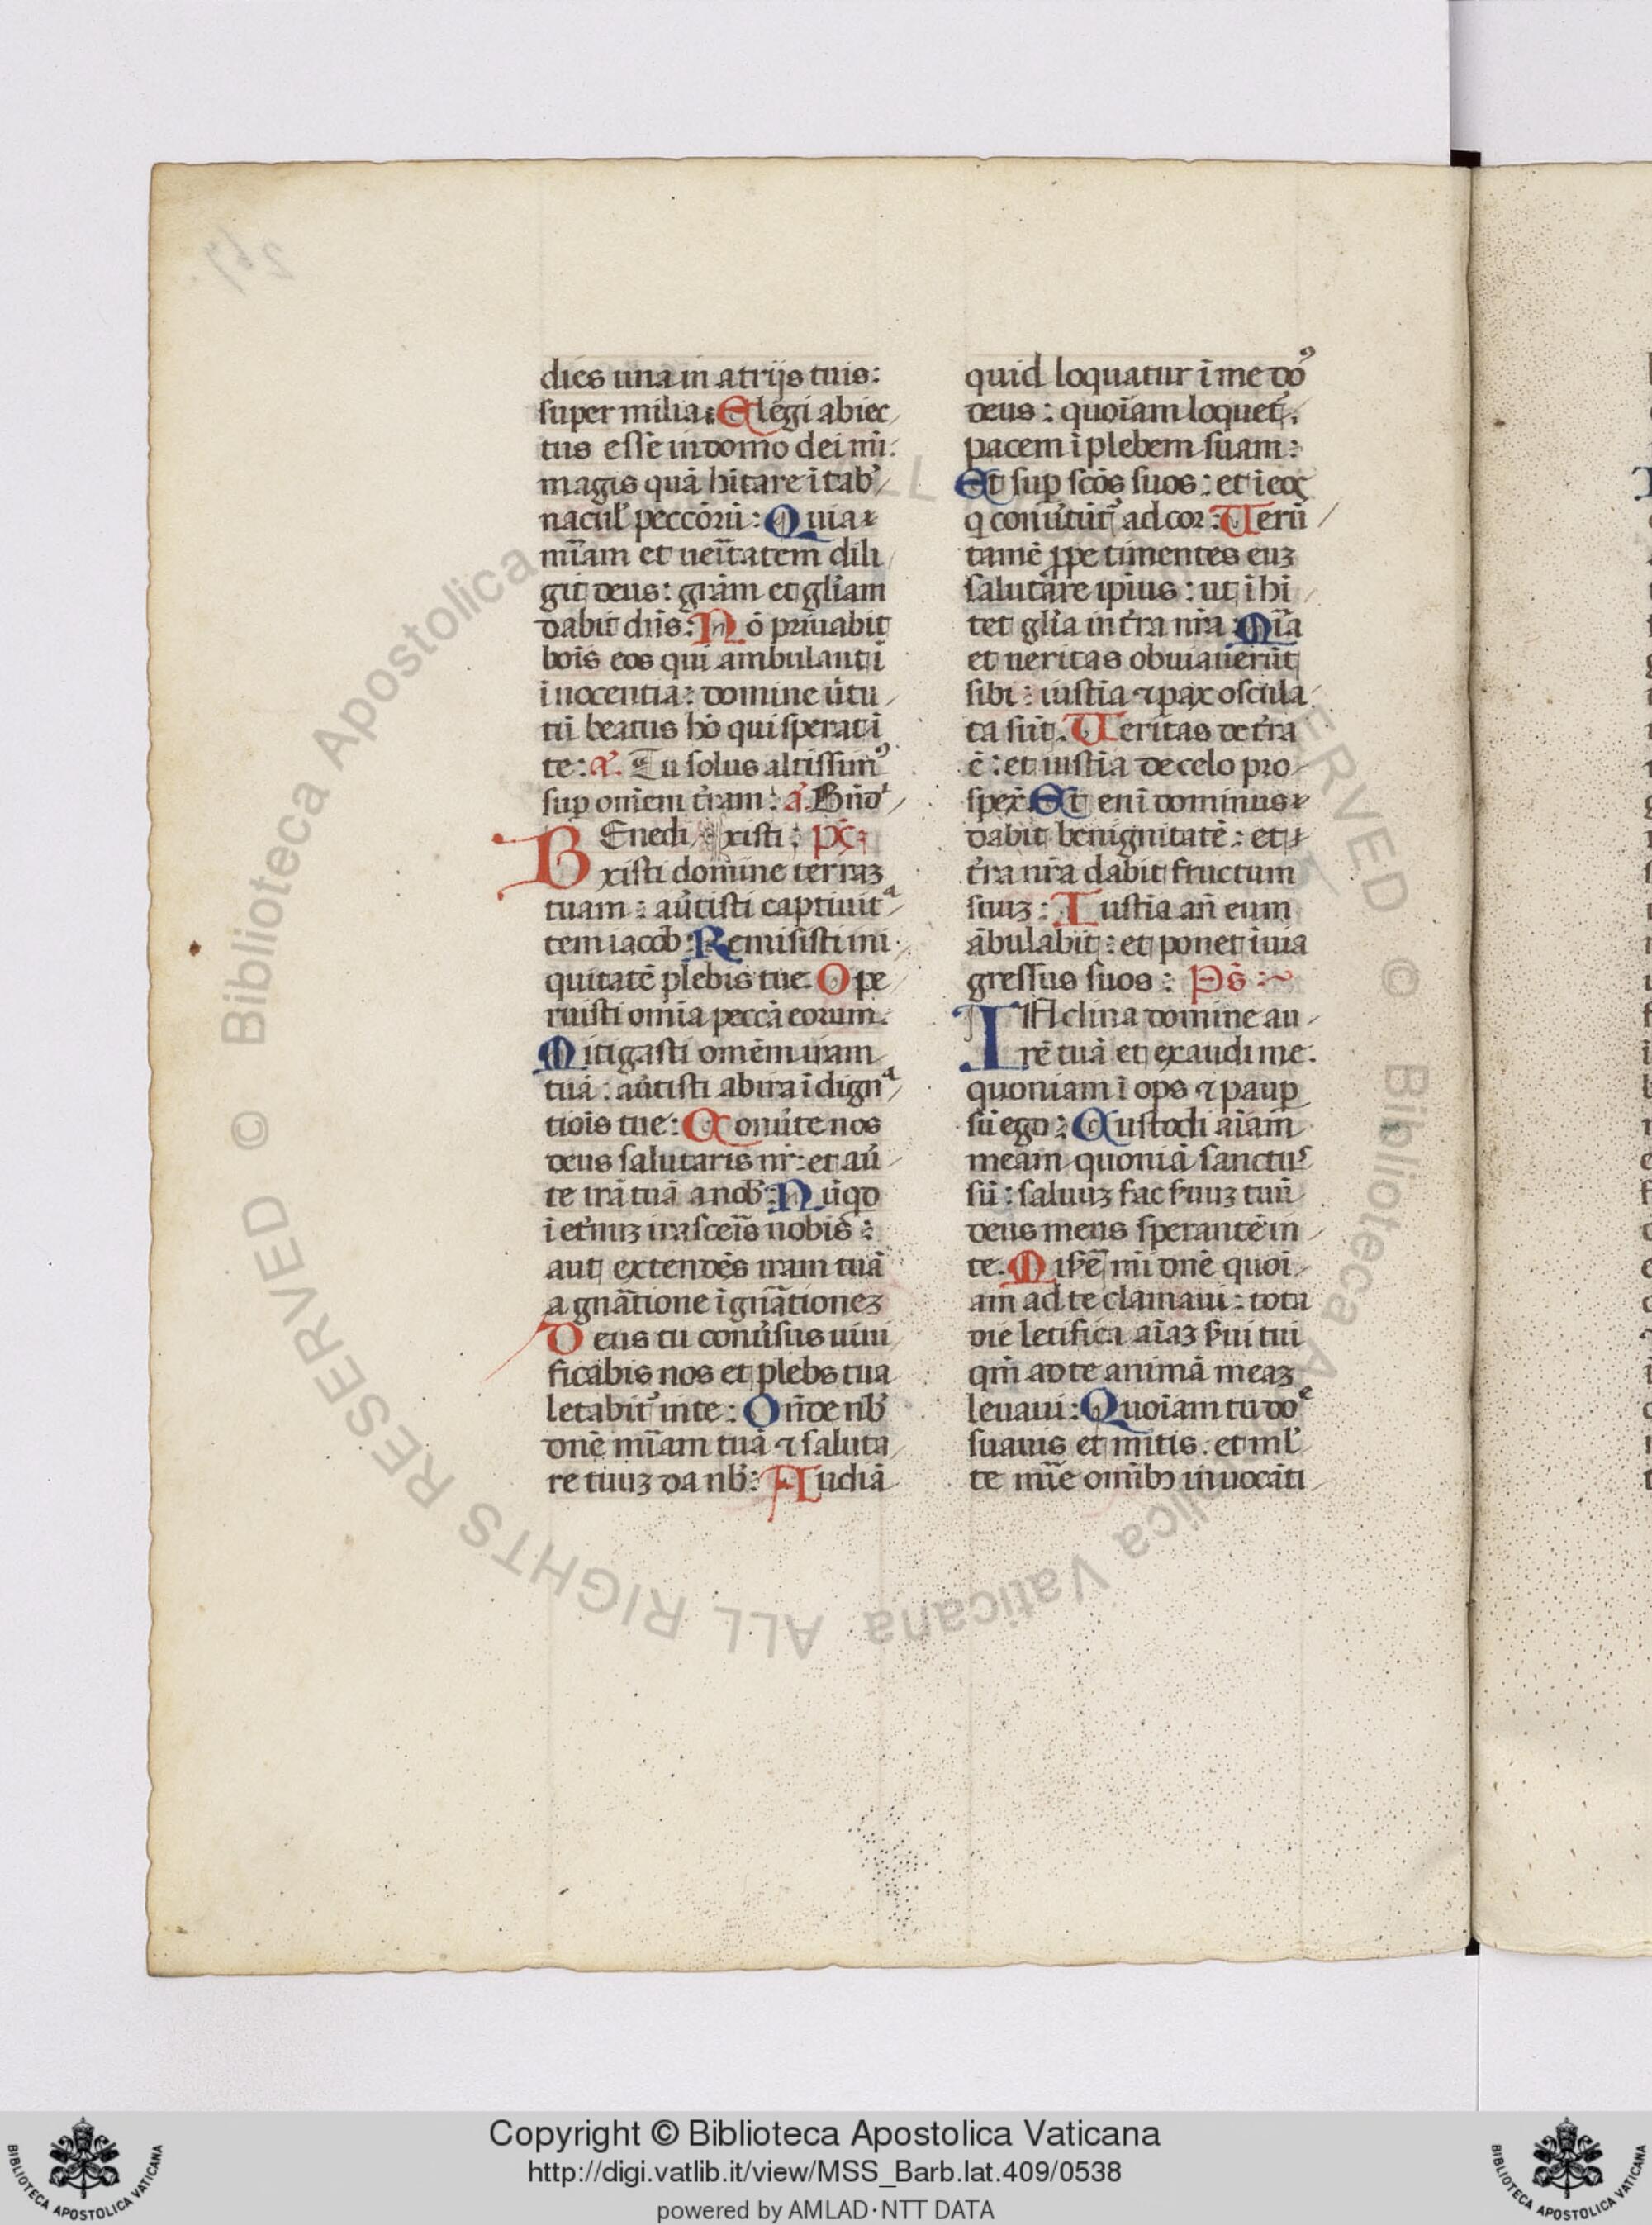 dies una in atrijs tuis:
super milia: Elegi abiec
tus esse in domo dei mi:
magis quā hītare ī tab̉
nacul̉ peccōrū: Quia
mīam et ueītatem dili
git deus: grām et gl̄iam
dabit dn̄s: Nō priuabit
bois eos qui ambulant ī
īnocentia: domine ūtu
tū beatus hō qui sperat ī
te: a̾. Tu solus altissim⁹
sup om̄em t̄ram: a̾. Bn̄d
BEnedixisti: ps̄
xisti domine terraꝫ
tuam: aūtisti captiuitᵃ
tem iacob: Remisisti ini
quitatē plebis tue: Ope
ruisti om̄ia peccā eorum:
Mitigasti om̄em iram
tuā: aūtisti ab ira īdignᵃ
tiois tue: Conūte nos
deus salutaris nr̄: et aū
te irā tuā a nob̄: Nūqd
ī et̉nuꝫ irasceīs nobis:
aut extendes iram tuā
a gnātione ī gnātioneꝫ
Deus tu conūsus uiui
ficabis nos et plebs tua
letabit̉ in te: Oñde nb̄
dn̄e mīam tuā ⁊ saluta
re tuuꝫ da nb̄: Audiā
quid loquatur ī me do⁹
deus: quoīam loquet̉
pacem ī plebem suam:
Et sup scōs suos: et ī eoꝝ
q conūtūt̉ ad cor: Uerū
tamē ꝓpe timentes euꝫ
salutare ipīus: ut īhi
tet gl̄ia in t̄ra nr̄a: Mīa
et ueritas obuiauerūt
sibi: iustīa ⁊ pax oscula
ta sūt. Ueritas de t̄ra
ē: et iustīa de celo pro
spex̉ Et enī dominus
dabit benignitatē: et
t̄ra nr̄a dabit fructum
suuꝫ: Iustīa an̄ eum
ābulabit: et ponet ī uia
gressus suos: Ps̄:
INclina domine au
rē tuā et exaudi me:
quoniam īops ⁊ paup
sū ego: Custodi aīam
meam quoniā sanctus
sū: saluuꝫ fac s̉uuꝫ tuū
deus meus sperantē in
te. Mis̉ē mī dn̄e quoi
am ad te clamaui: tota
die letifica aīaꝫ s̉ui tui
qm̄ ad te animā meaꝫ
leuaui: Quoīam tu doᵉ
suauis et mitis. et ml̉
te mīe om̄ibꝫ inuocāti
Copyright © Biblioteca Apostolica Vaticana
http://digi.vatlib.it/view/MSS_Barb.lat.409/0538
powered by AMLAD·NTT DATA
BIBLIOTECA APOSTOLICA VATICANA
BIBLIOTECA APOSTOLICA VATICANA